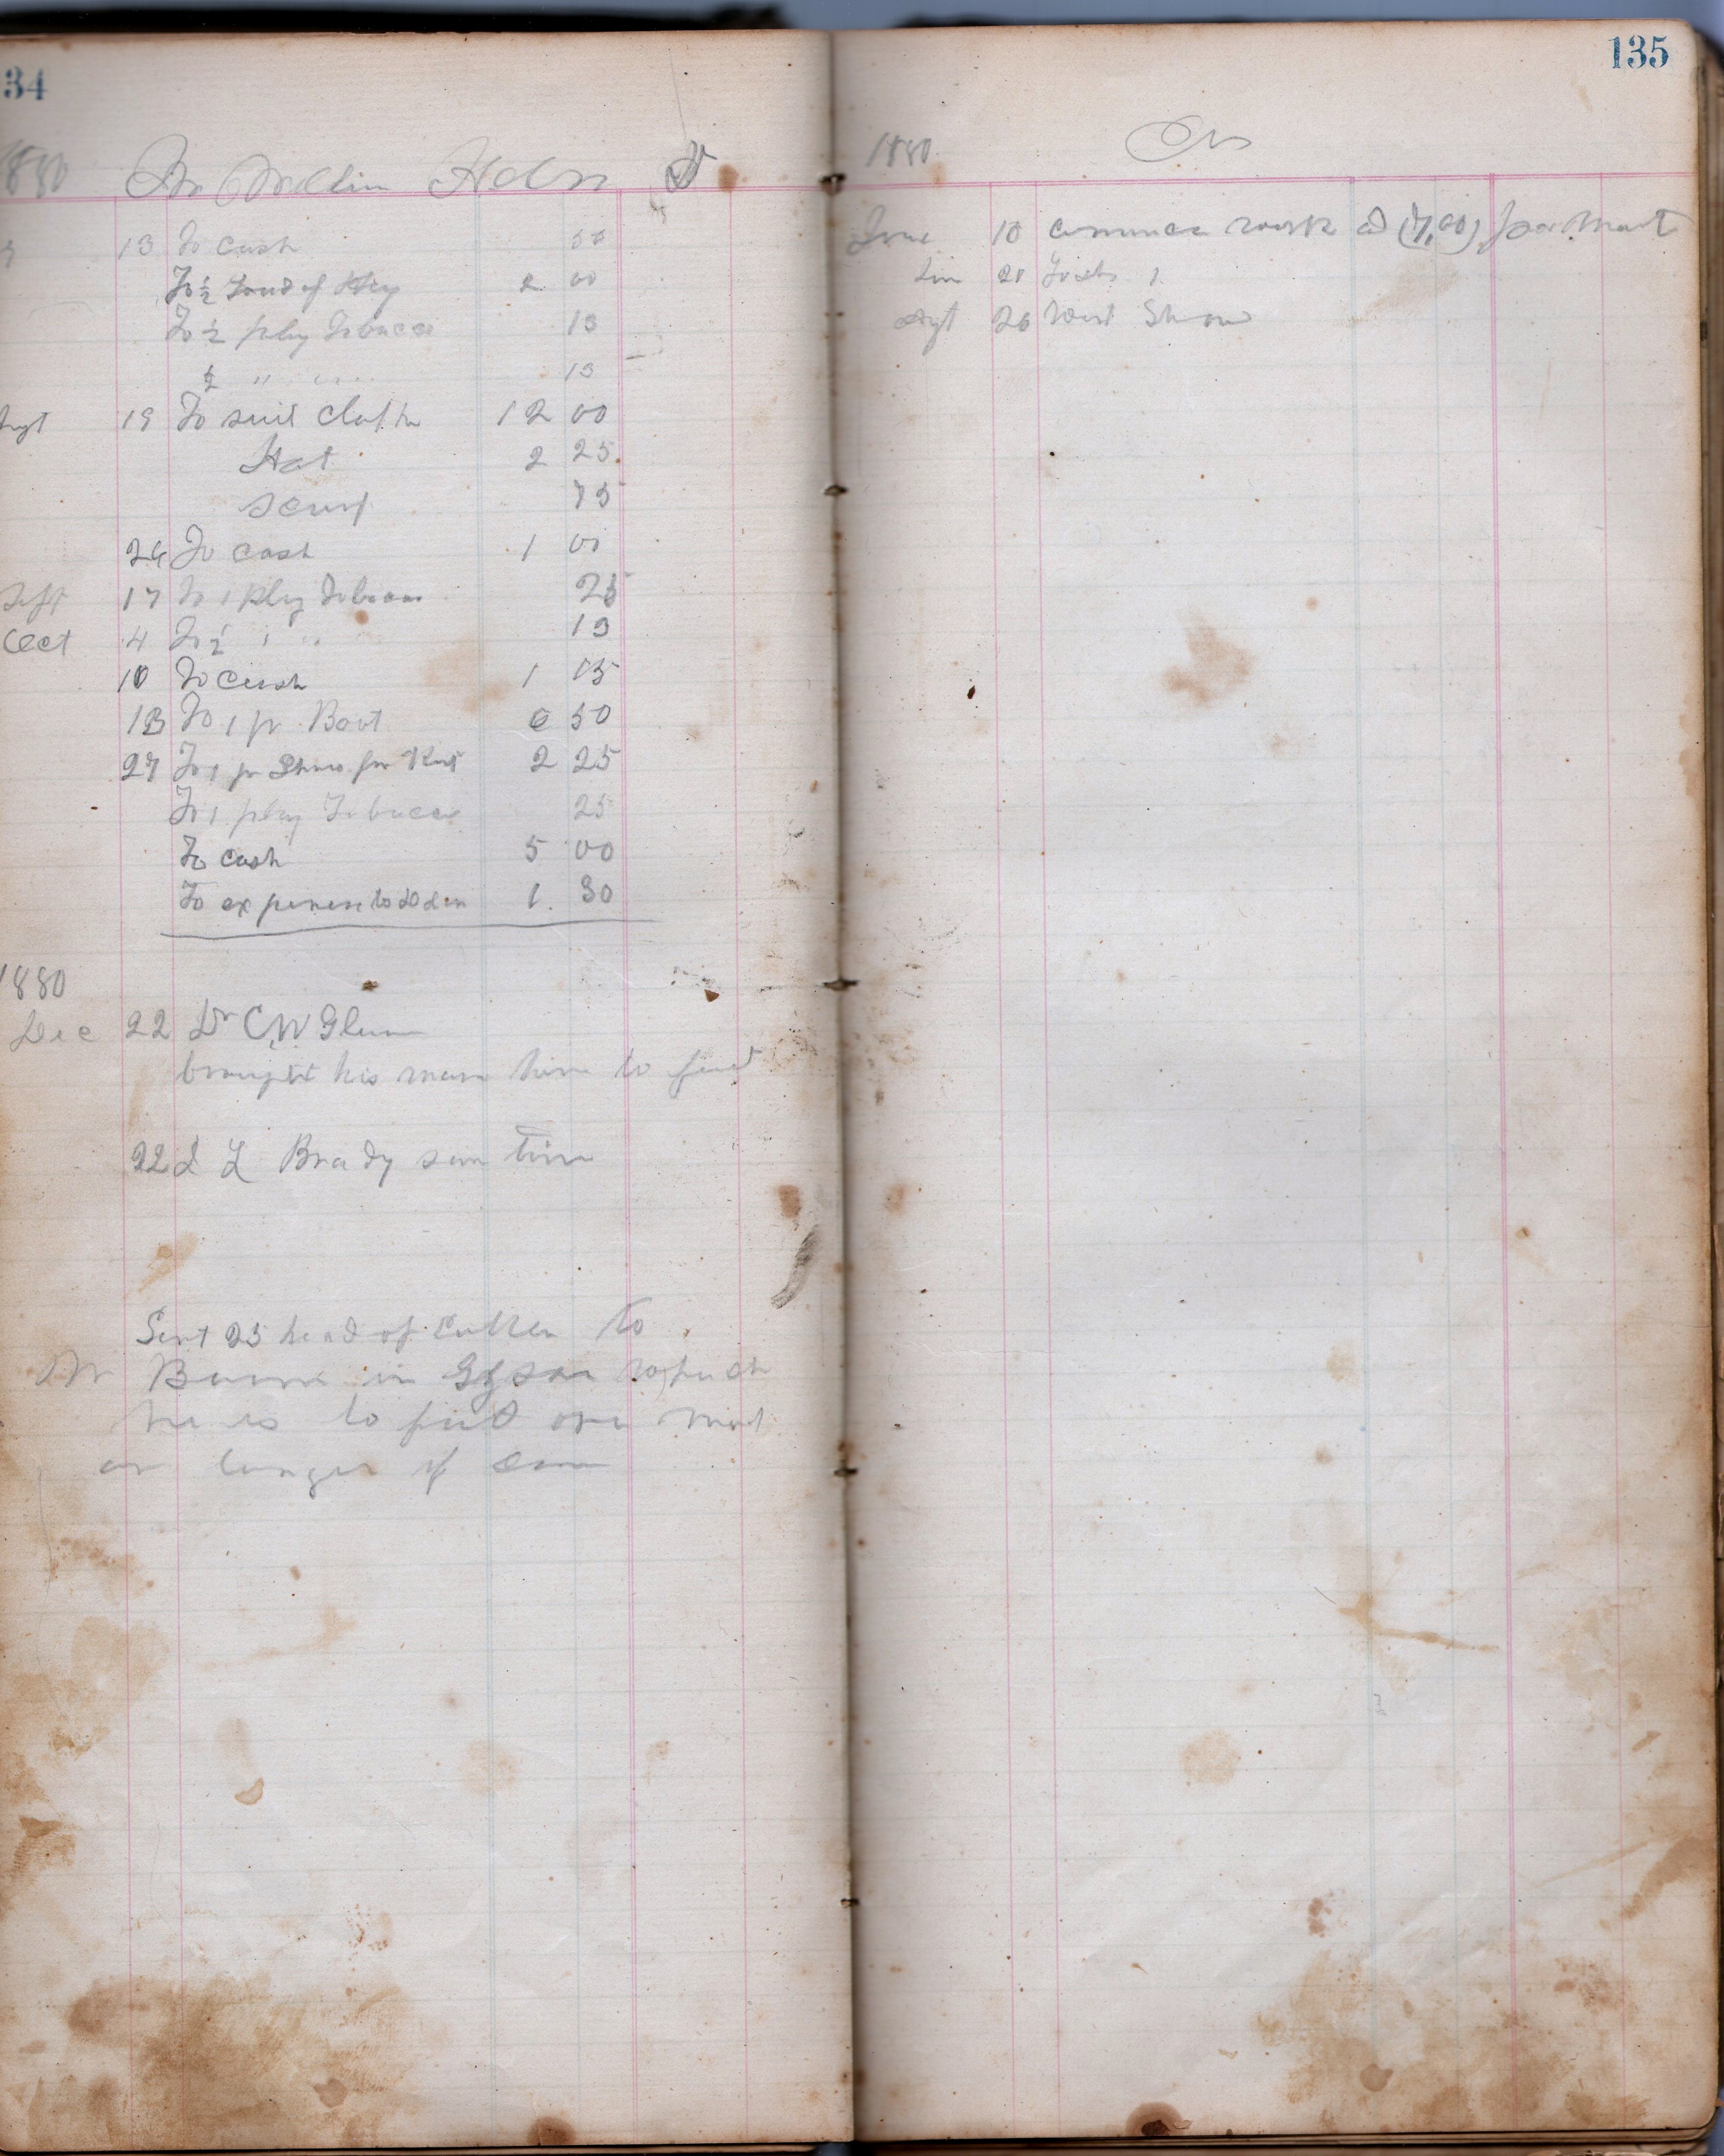 34
1880 Mr Dr
13 To cash 50
To ½ Load of Hay 2 00
To ½ plug Tobacco 13
½ " " 13
Agt 19 To suit Cloths 12 00
Hat 2 25
scarf 75
24 To cash 1 00
Sept 17 To 1 Plug Tobacco 25
Oct 4 To ½ " " 13
10 To cash 1 15
13 To 1 pr Boot 50
27 To 1 pr Shoes for 2 25
To 1 plug Tobacco 25
To cash 5 00
To expenses to 1. 30
1880
Dec 22 Dr C W Glenn
brought his mare here to feed
22 L Brady same time
Sent 25 head of Cattle to
Mr in which
he is to feed one mont
or longer if
135
1880 Cr
June 10 commence work (7,00) per Mont
21 lost 1
Agt 26 went Show